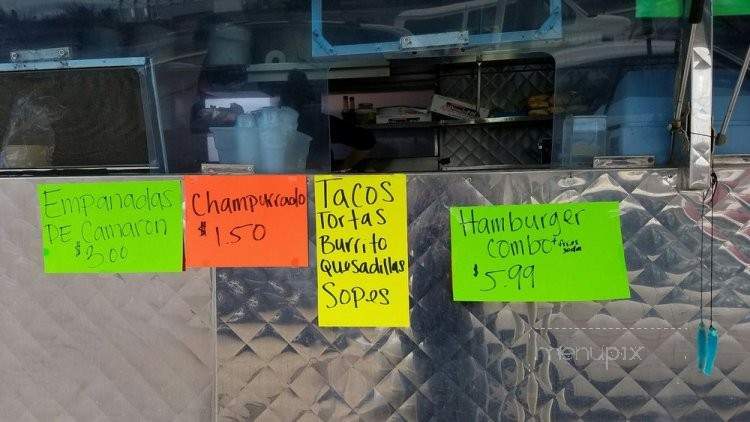 Empanadas
DE Camaron
$3.00
Champurrado
$1.50
Tacos
Tortas
Burrito
Quesadillas
Sopes
Hamburger
Combo + fries
soda
$5.99
menupix